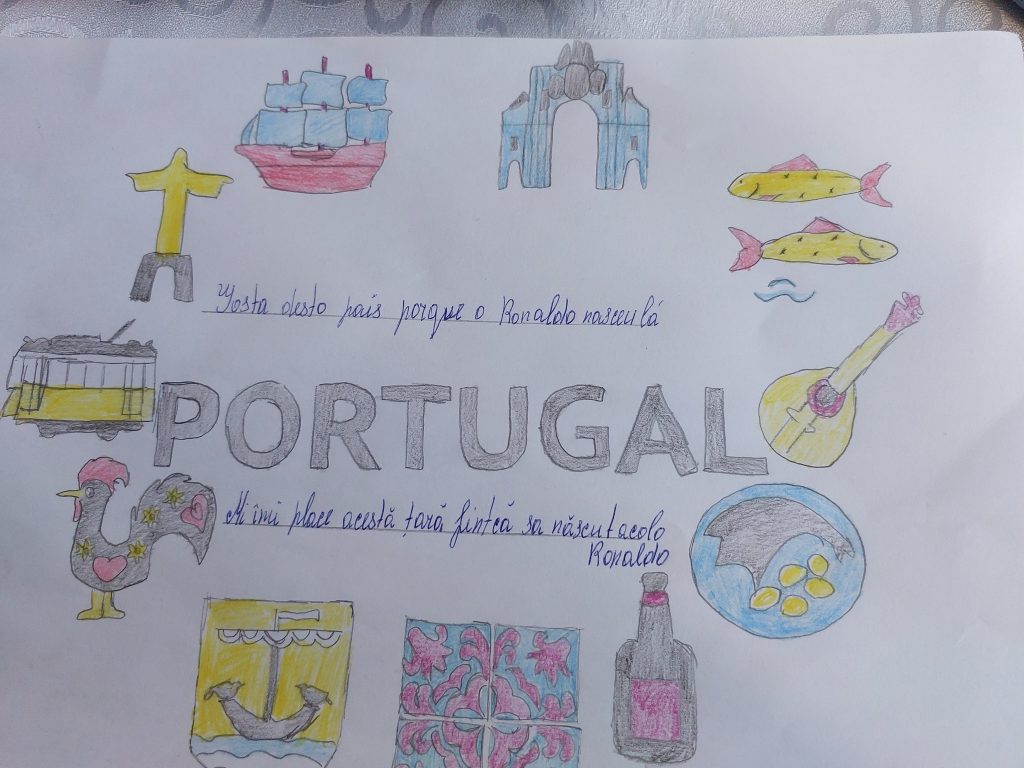 Yosta desto país porque o Ronaldo nasceu lá
PORTUGAL
Mi îmi place acestă țară fintcă sa născut acolo
Ronaldo